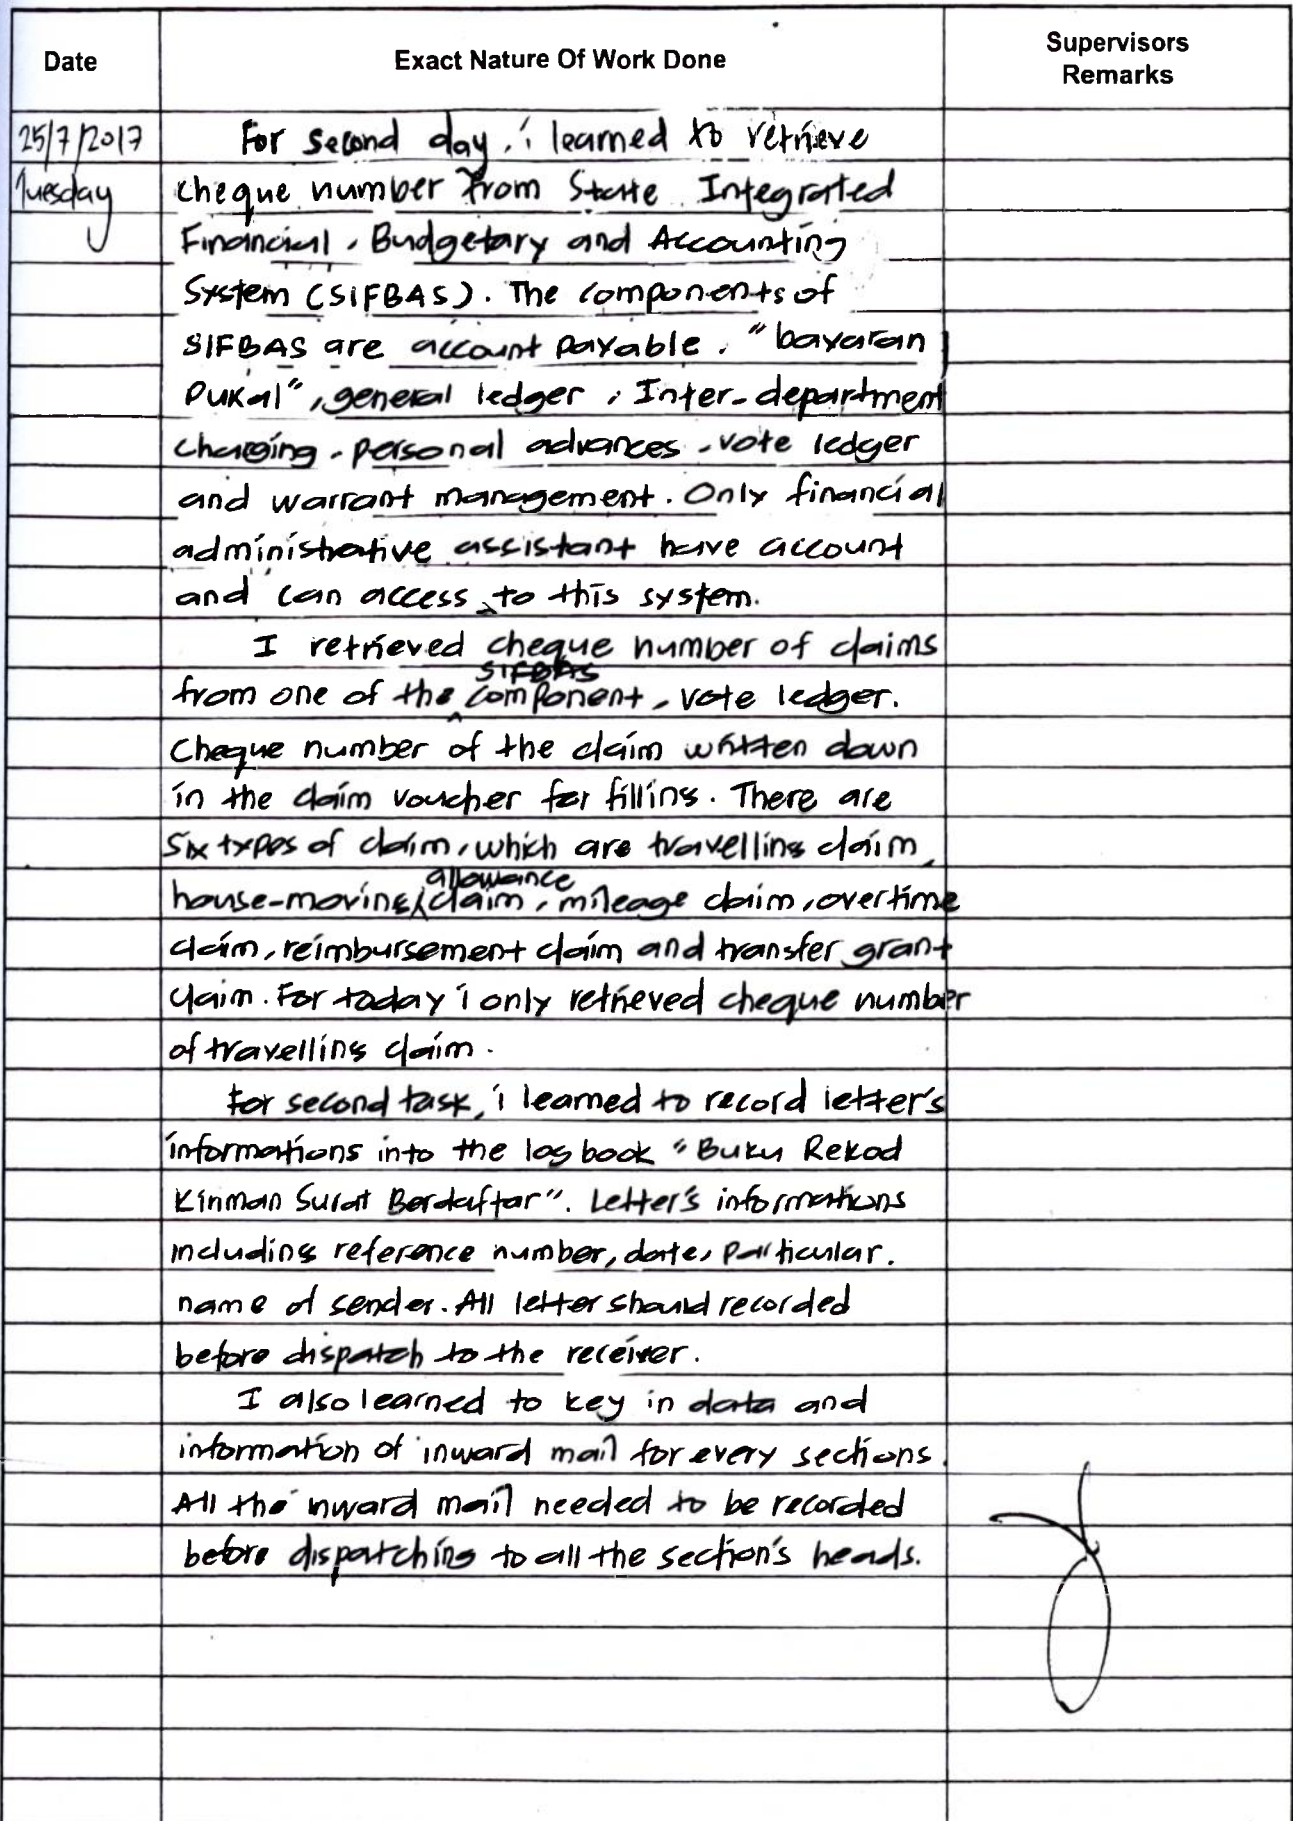 Date Exact Nature Of Work Done Supervisors Remarks
25/7/2017 For second day, i learned to retrieve
Tuesday cheque number from State Integrated
Financial, Budgetary and Accounting
System (SIFBAS). The components of
SIFBAS are account payable, "bayaran
Pukal", general ledger, Inter-department
charging, personal advances, vote ledger
and warrant management. Only financial
administrative assistant have account
and can access to this system.
I retrieved cheque number of claims
from one of the SIFBAS component, vote ledger.
Cheque number of the claim written down
in the claim voucher for filling. There are
six types of claim, which are travelling claim,
house-moving allowance claim, mileage claim, overtime
claim, reimbursement claim and transfer grant
claim. For today i only retrieved cheque number
of travelling claim.
For second task, i learned to record letter's
informations into the log book "Buku Rekod
Kiriman Surat Berdaftar". Letter's informations
including reference number, date, particular,
name of sender. All letter should recorded
before dispatch to the receiver.
I also learned to key in data and
information of inward mail for every sections.
All the inward mail needed to be recorded
before dispatching to all the section's heads.